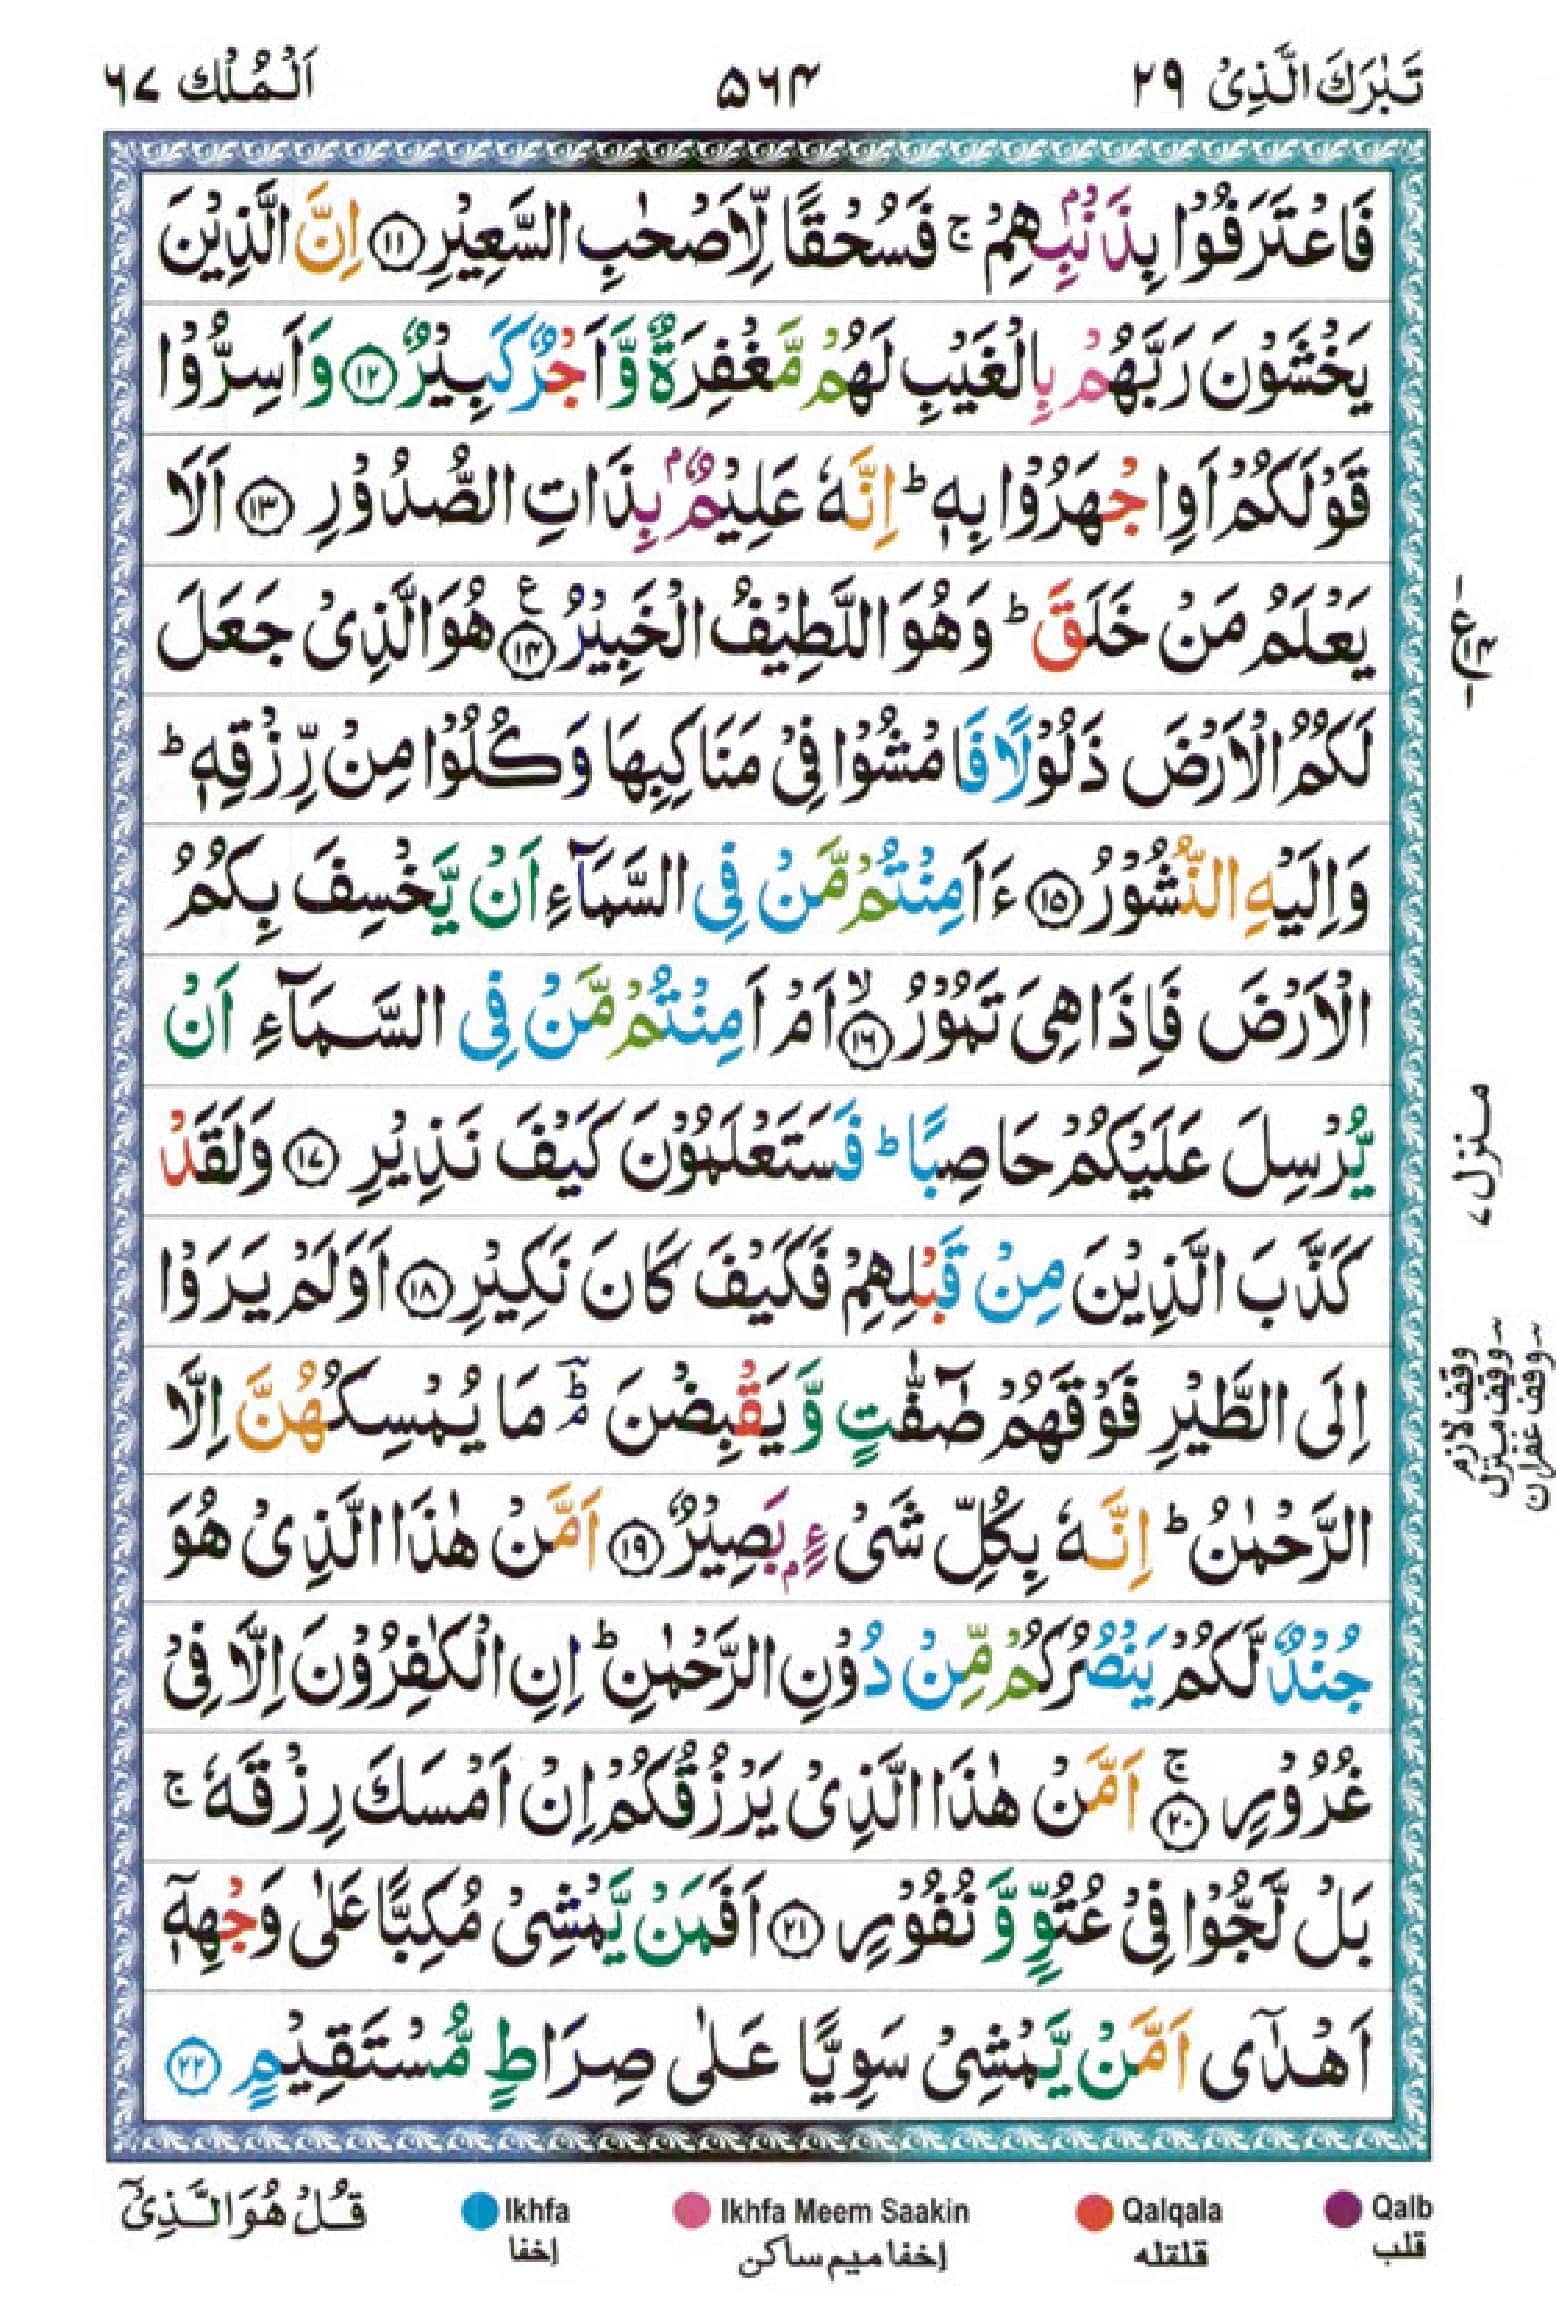 تَبٰرَكَ الَّذِیْ ٢٩
۵۶۴
اَلْمُلْك ٦٧
فَاعْتَرَفُوْا بِذَنْۢبِهِمْ ۚ فَسُحْقًا لِّاَصْحٰبِ السَّعِیْرِ ﴿١١﴾ اِنَّ الَّذِیْنَ
یَخْشَوْنَ رَبَّهُمْ بِالْغَیْبِ لَهُمْ مَّغْفِرَةٌ وَّاَجْرٌ كَبِیْرٌ ﴿١٢﴾ وَاَسِرُّوْا
قَوْلَكُمْ اَوِاجْهَرُوْا بِهٖ ؕ اِنَّهٗ عَلِیْمٌۢ بِذَاتِ الصُّدُوْرِ ﴿١٣﴾ اَلَا
یَعْلَمُ مَنْ خَلَقَ ؕ وَهُوَ اللَّطِیْفُ الْخَبِیْرُ ﴿١۴﴾ ع هُوَالَّذِیْ جَعَلَ
لَكُمُ الْاَرْضَ ذَلُوْلًا فَامْشُوْا فِیْ مَنَاكِبِهَا وَكُلُوْا مِنْ رِّزْقِهٖ ؕ
وَاِلَیْهِ النُّشُوْرُ ﴿١۵﴾ ءَاَمِنْتُمْ مَّنْ فِی السَّمَآءِ اَنْ یَّخْسِفَ بِكُمُ
الْاَرْضَ فَاِذَا هِیَ تَمُوْرُ ﴿١٦﴾ ۙ اَمْ اَمِنْتُمْ مَّنْ فِی السَّمَآءِ اَنْ
یُّرْسِلَ عَلَیْكُمْ حَاصِبًا ؕ فَسَتَعْلَمُوْنَ كَیْفَ نَذِیْرِ ﴿١٧﴾ وَلَقَدْ
كَذَّبَ الَّذِیْنَ مِنْ قَبْلِهِمْ فَكَیْفَ كَانَ نَكِیْرِ ﴿١٨﴾ اَوَلَمْ یَرَوْا
اِلَى الطَّیْرِ فَوْقَهُمْ صٰٓفّٰتٍ وَّیَقْبِضْنَ ؔؕۘ مَا یُمْسِكُهُنَّ اِلَّا
الرَّحْمٰنُ ؕ اِنَّهٗ بِكُلِّ شَیْءٍۭ بَصِیْرٌ ﴿١٩﴾ اَمَّنْ هٰذَا الَّذِیْ هُوَ
جُنْدٌ لَّكُمْ یَنْصُرُكُمْ مِّنْ دُوْنِ الرَّحْمٰنِ ؕ اِنِ الْكٰفِرُوْنَ اِلَّا فِیْ
غُرُوْرٍ ﴿٢٠﴾ ۚ اَمَّنْ هٰذَا الَّذِیْ یَرْزُقُكُمْ اِنْ اَمْسَكَ رِزْقَهٗ ۚ
بَلْ لَّجُّوْا فِیْ عُتُوٍّ وَّ نُفُوْرٍ ﴿٢١﴾ اَفَمَنْ یَّمْشِیْ مُكِبًّا عَلٰى وَجْهِهٖۤ
اَهْدٰۤى اَمَّنْ یَّمْشِیْ سَوِیًّا عَلٰى صِرَاطٍ مُّسْتَقِیْمٍ ﴿٢٢﴾
ع
منزل ٧
وقف لازم
وقف منزل
وقف غفران
Qalb قلب
Qalqala قلقله
Ikhfa Meem Saakin إخفا ميم ساكن
Ikhfa إخفا
قُلْ هُوَ الَّذِیْۤ